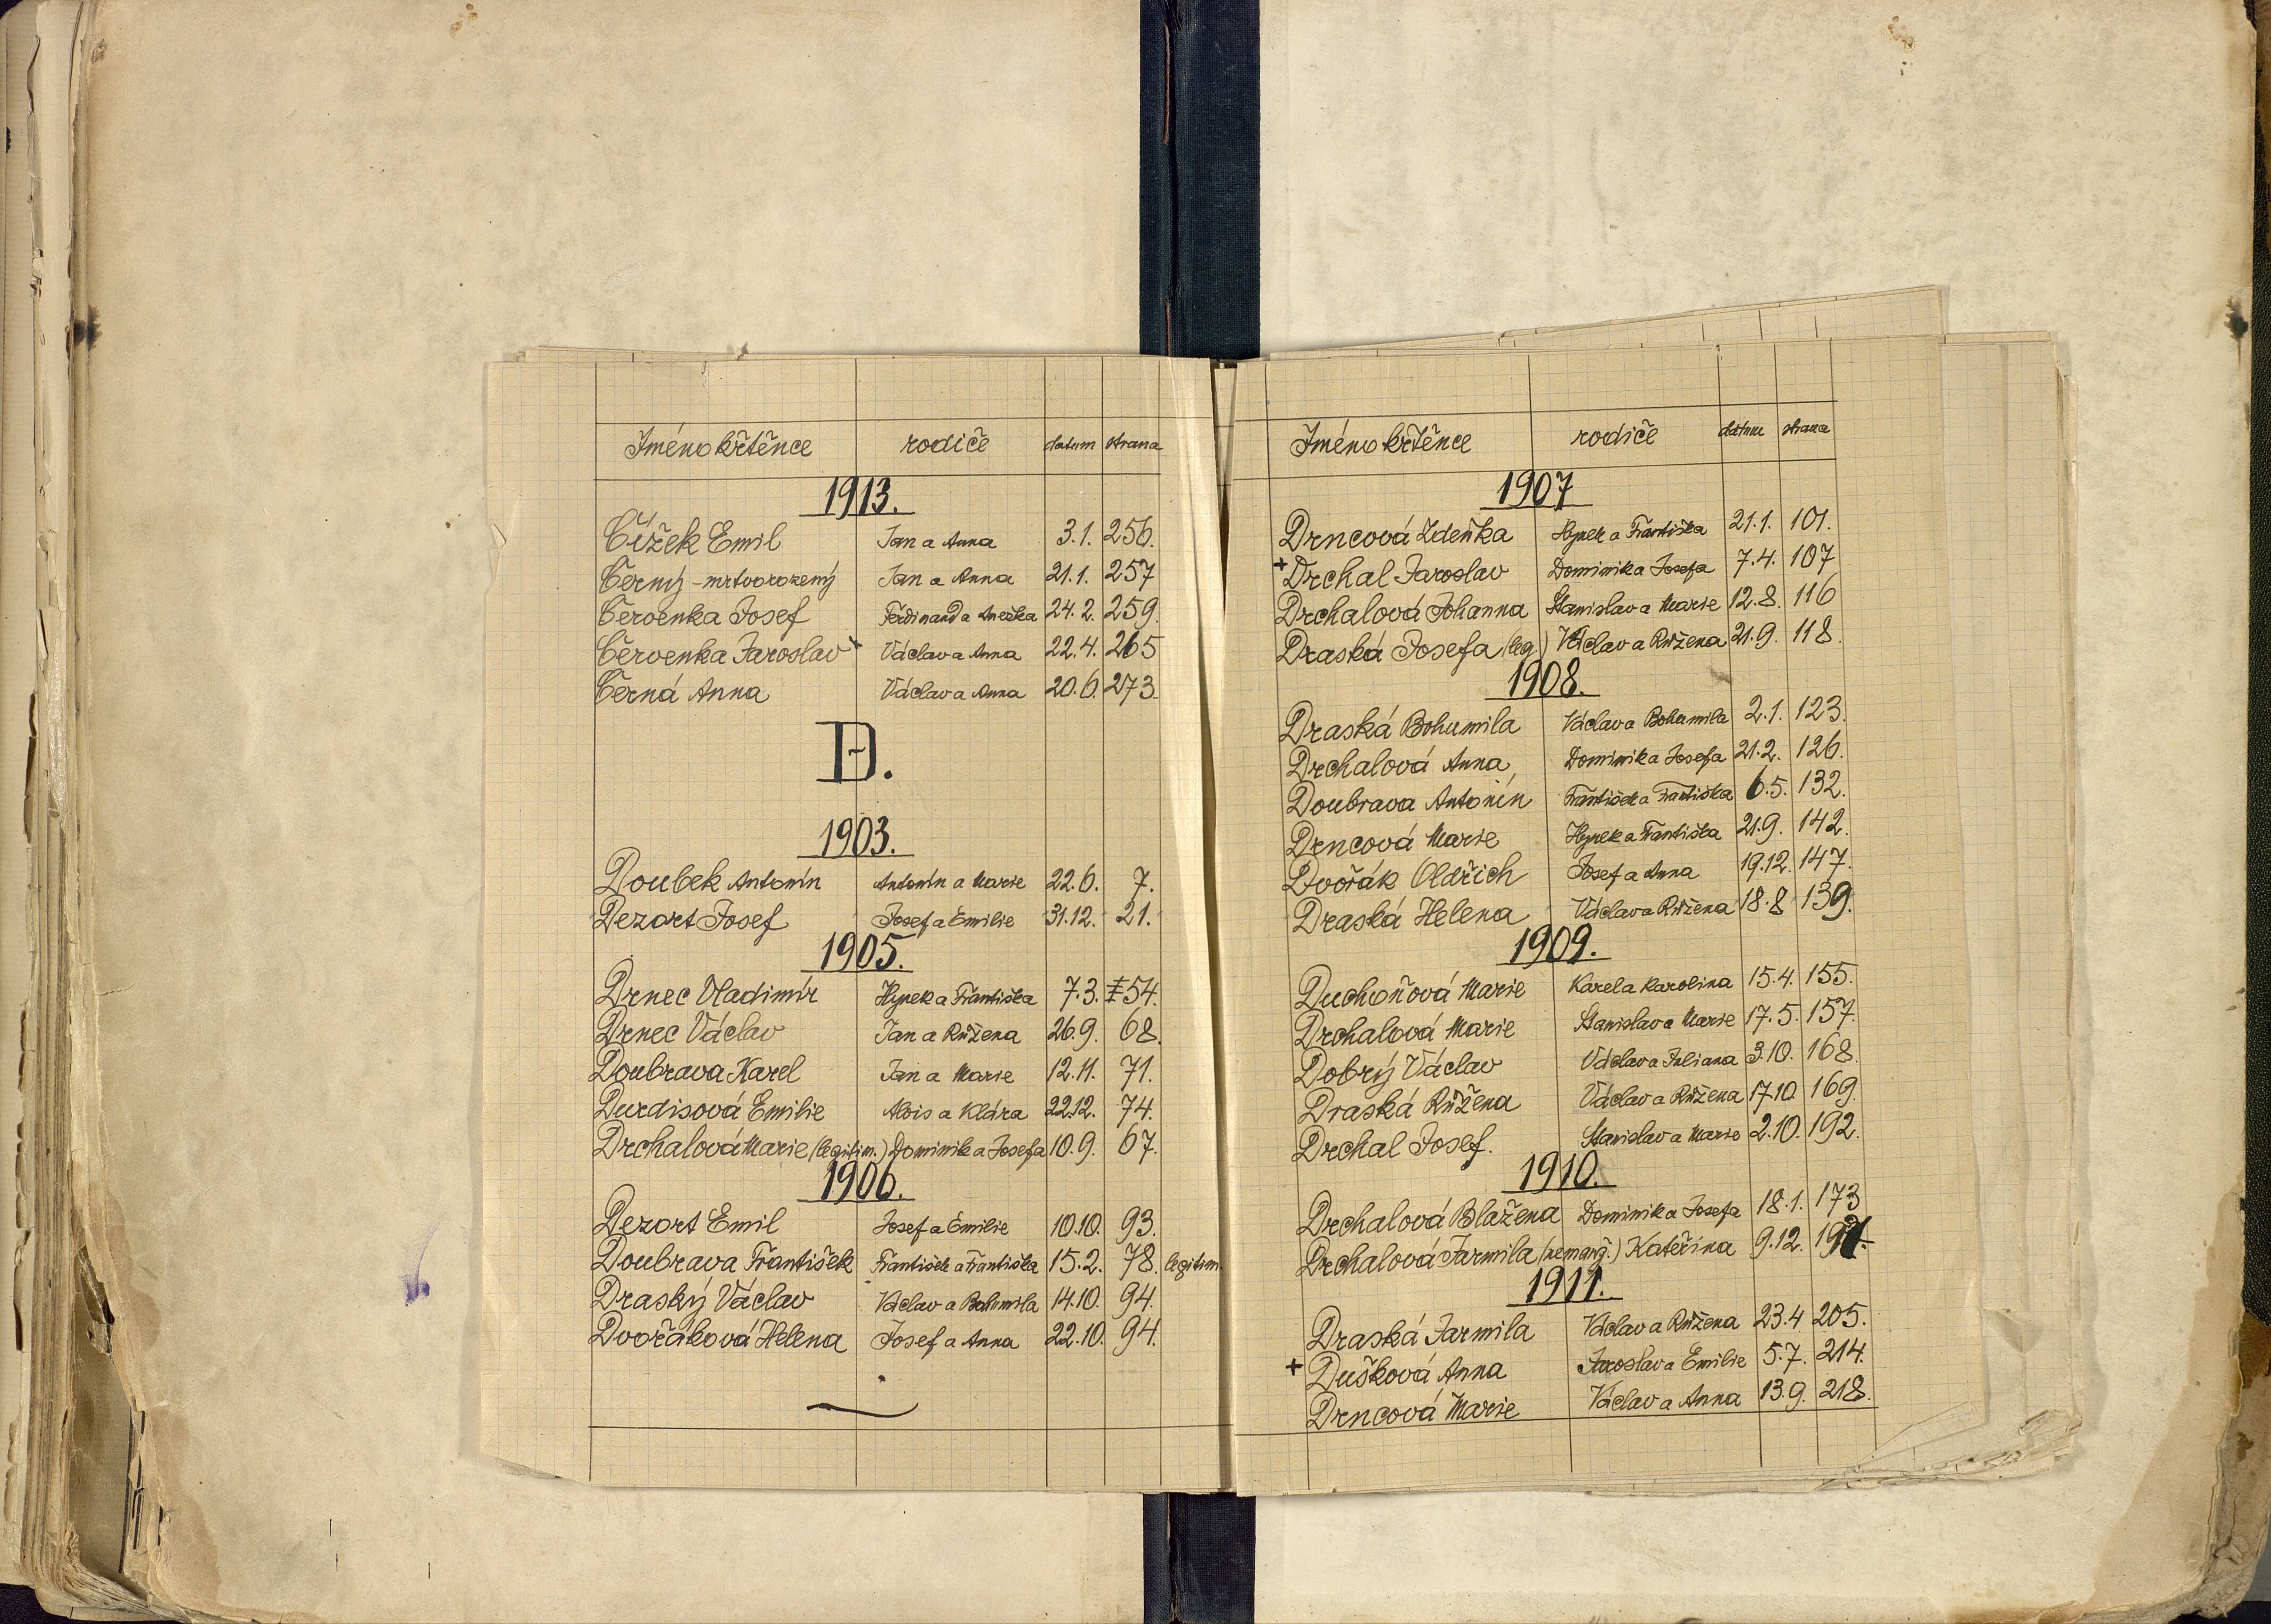 Jméno křtěnce rodiče datum strana
1913.
Čížek Emil Jan a Anna 3.1. 256.
Černý - mrtvorozený Jan a Anna 21.1. 257
Červenka Josef Ferdinand a Anežka 24.2. 259.
Červenka Jaroslav Václav a Anna 22.4. 265
Černá Anna Václav a Anna 20.6. 273.
D.
1903.
Doubek Antonín Antonín a Marie 22.6. 7.
Dezort Josef Josef a Emilie 31.12. 21.
1905.
Drnec Vladimír Hynek a Františka 7.3. 54.
Drnec Václav Jan a Růžena 26.9. 68.
Doubrava Karel Jan a Marie 12.11. 71.
Durdisová Emilie Alois a Klára 22.12. 74.
Drchalová Marie (legitim.) Dominik a Josefa 10.9. 67.
1906.
Dezort Emil Josef a Emilie 10.10. 93.
Doubrava František František a Františka 15.2. 78. legitim.
Draský Václav Václav a Bohumila 14.10. 94.
Dvořáková Helena Josef a Anna 22.10. 94.
Jméno křtěnce rodiče datum strana
1907
Drncová Zdeňka Hynek a Františka 21.1. 101.
+ Drchal Jaroslav Dominik a Josefa 7.4. 107
Drchalová Johanna Stanislav a Marie 12.8. 116
Draská Josefa (leg.) Václav a Růžena 21.9. 118.
1908.
Draská Bohumila Václav a Bohumila 2.1. 123.
Drchalová Anna Dominik a Josefa 21.2. 126.
Doubrava Antonín František a Františka 6.5. 132.
Drncová Marie Hynek a Františka 21.9. 142.
Dvořák Oldřich Josef a Anna 19.12. 147.
Draská Helena Václav a Růžena 18.8 139.
1909.
Duchoňová Marie Karel a Karolina 15.4. 155.
Drchalová Marie Stanislav a Marie 17.5. 157.
Dobrý Václav Václav a Juliana 3.10. 168.
Draská Růžena Václav a Růžena 17.10 169.
Drchal Josef. Stanislav a Marie 2.10. 192.
1910.
Drchalová Blažena Dominik a Josefa 18.1. 173
Drchalová Jarmila (nemanž.) Kateřina 9.12.
1911.
Draská Jarmila Václav a Růžena 23.4 205.
+ Dušková Anna Jaroslav a Emilie 5.7. 214.
Drncová Marie Václav a Anna 13.9. 218.